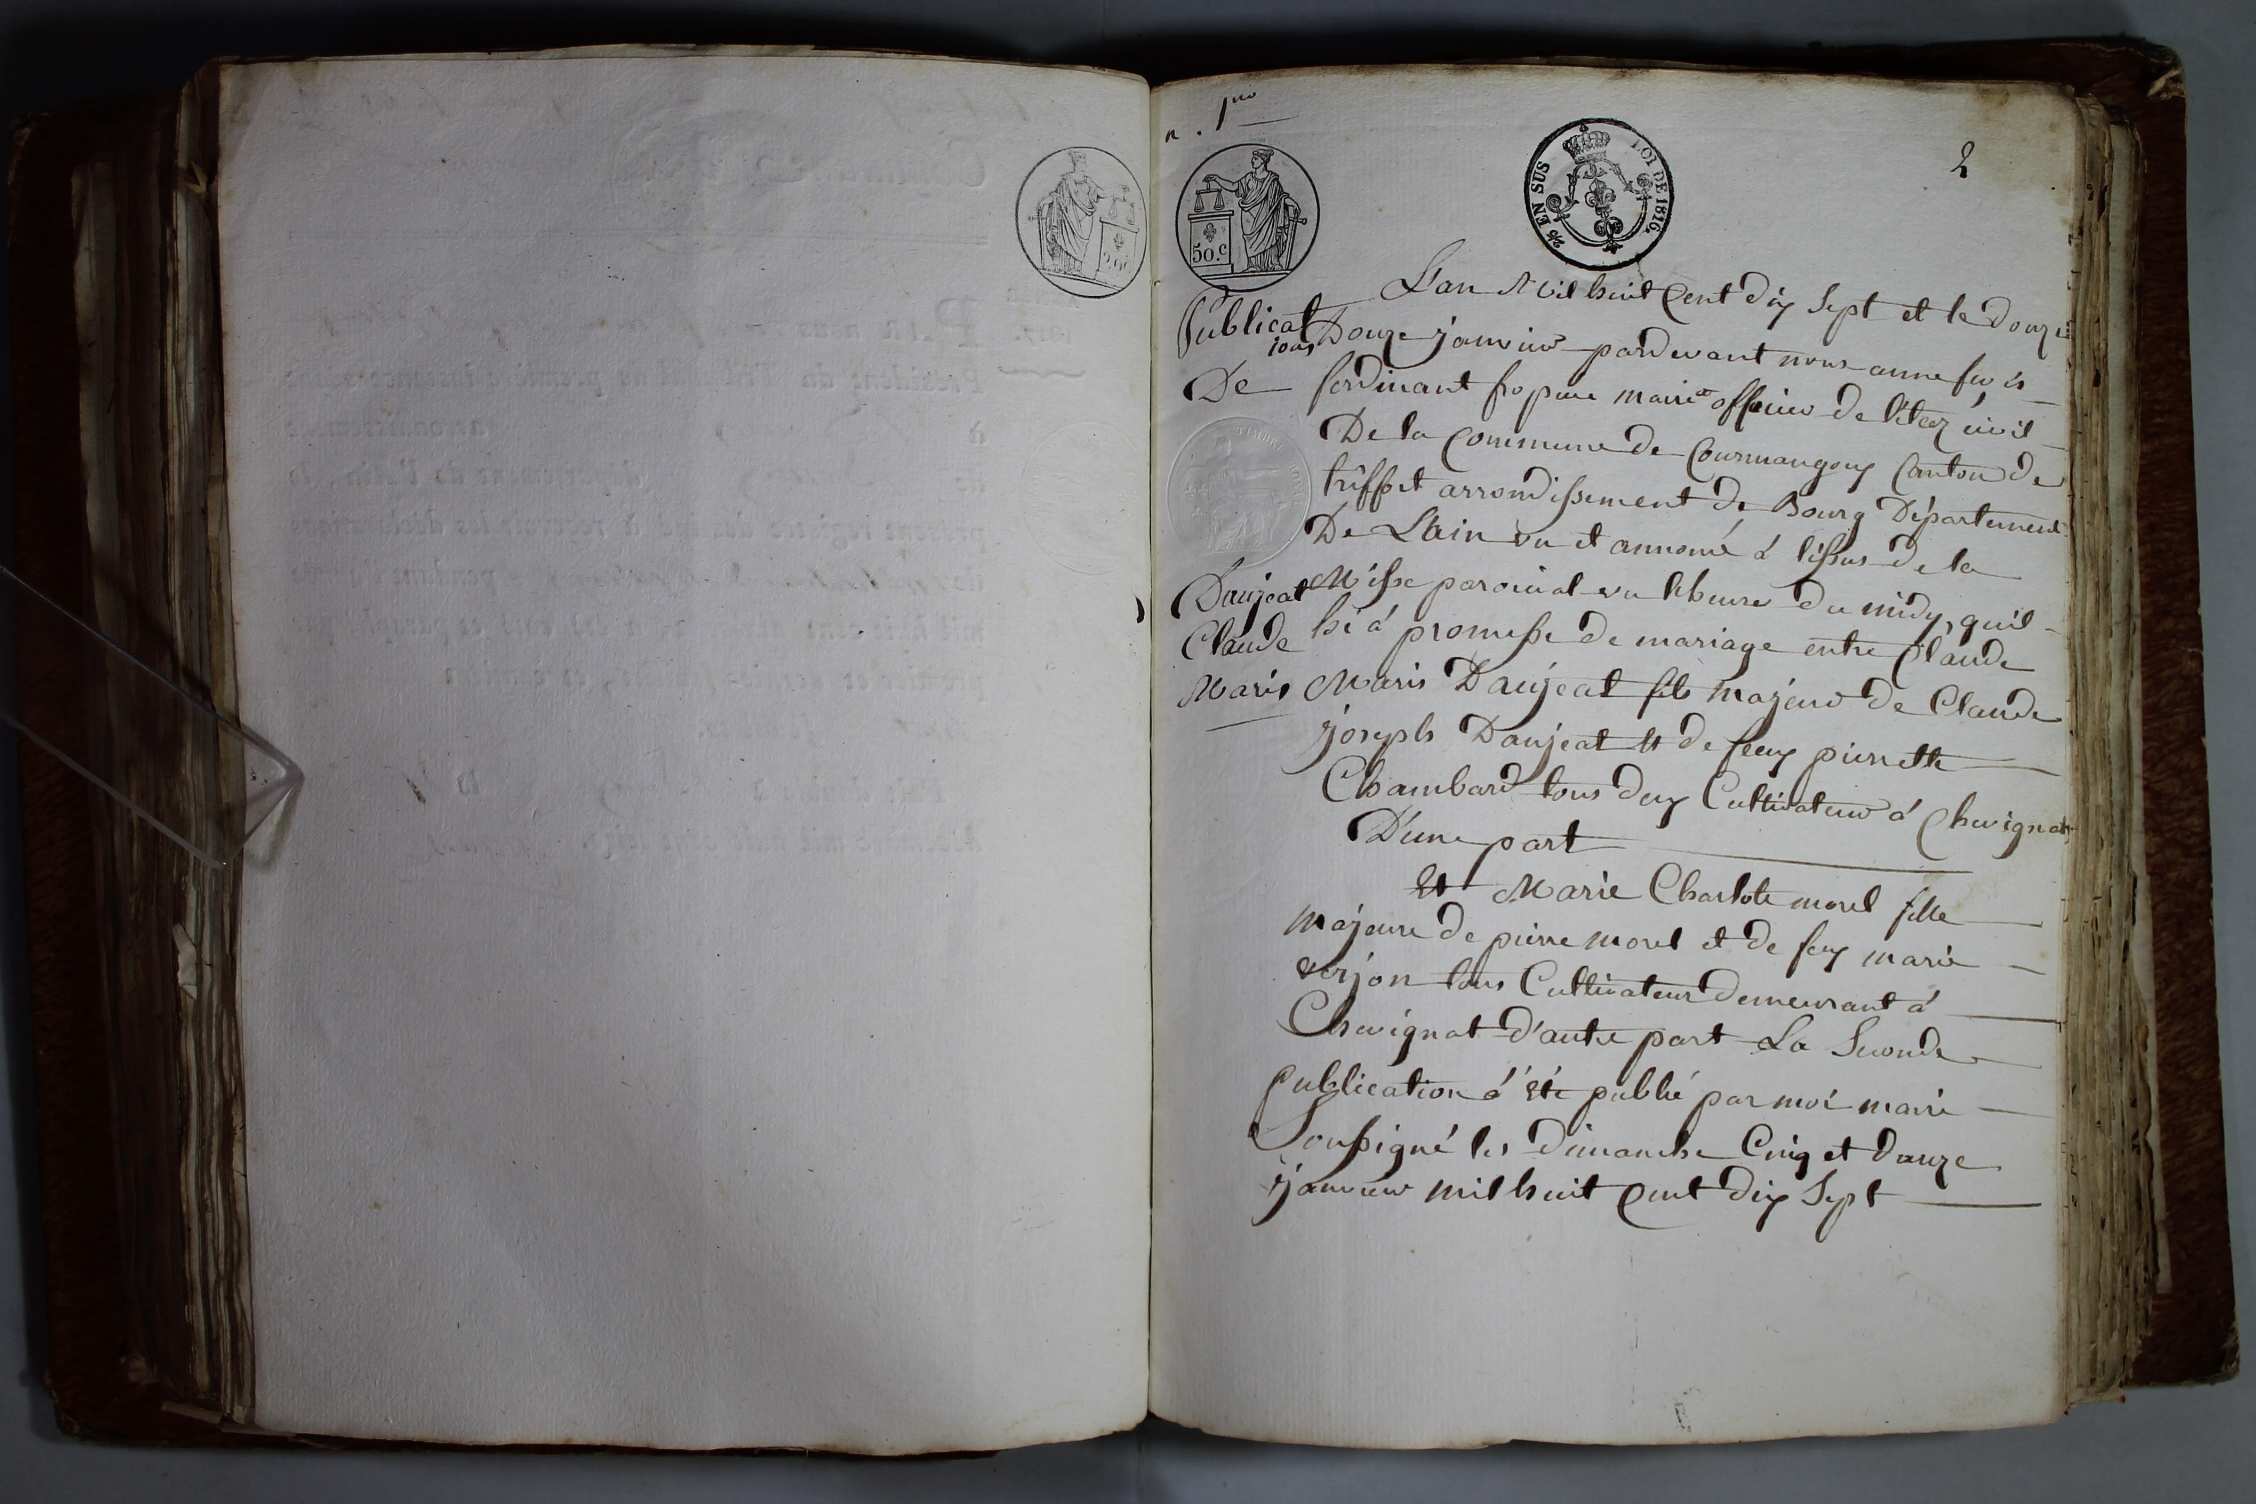 n. 1.ro
2
50.c
2/5 EN SUS
LOI DE 1816.
TIMBRE ROYAL
L'an Mil huit Cent dix Sept et le douze
Publicat
ions
De
Douze janvier pardevant nous anne fçois
ferdinant maire officier de l'état civil
De la Commune de Courmangoux Canton de
treffort arrondissement de Bourg Département
De L'ain et annoncé á l'issus de la
Daujeat
Claude
Marie
Messe paroicial vu lheure du midy, quil
hi á promesse de mariage entre Claude
Marie Daujeat fils majeur de Claude
joseph Daujeat et de feux pierrette
Chambard tous deux Cultivateur á Chevignat
D'une part
Et Marie Charlote morel fille
majeure de pierre morel et de feux marie
verjon tous Cultivateur demeurant á
Chevignat d'autre part La Seconde
publication á été publié par moi maire
Soussigné les dimanche Cinq et douze
janvier mil huit Cent dix Sept